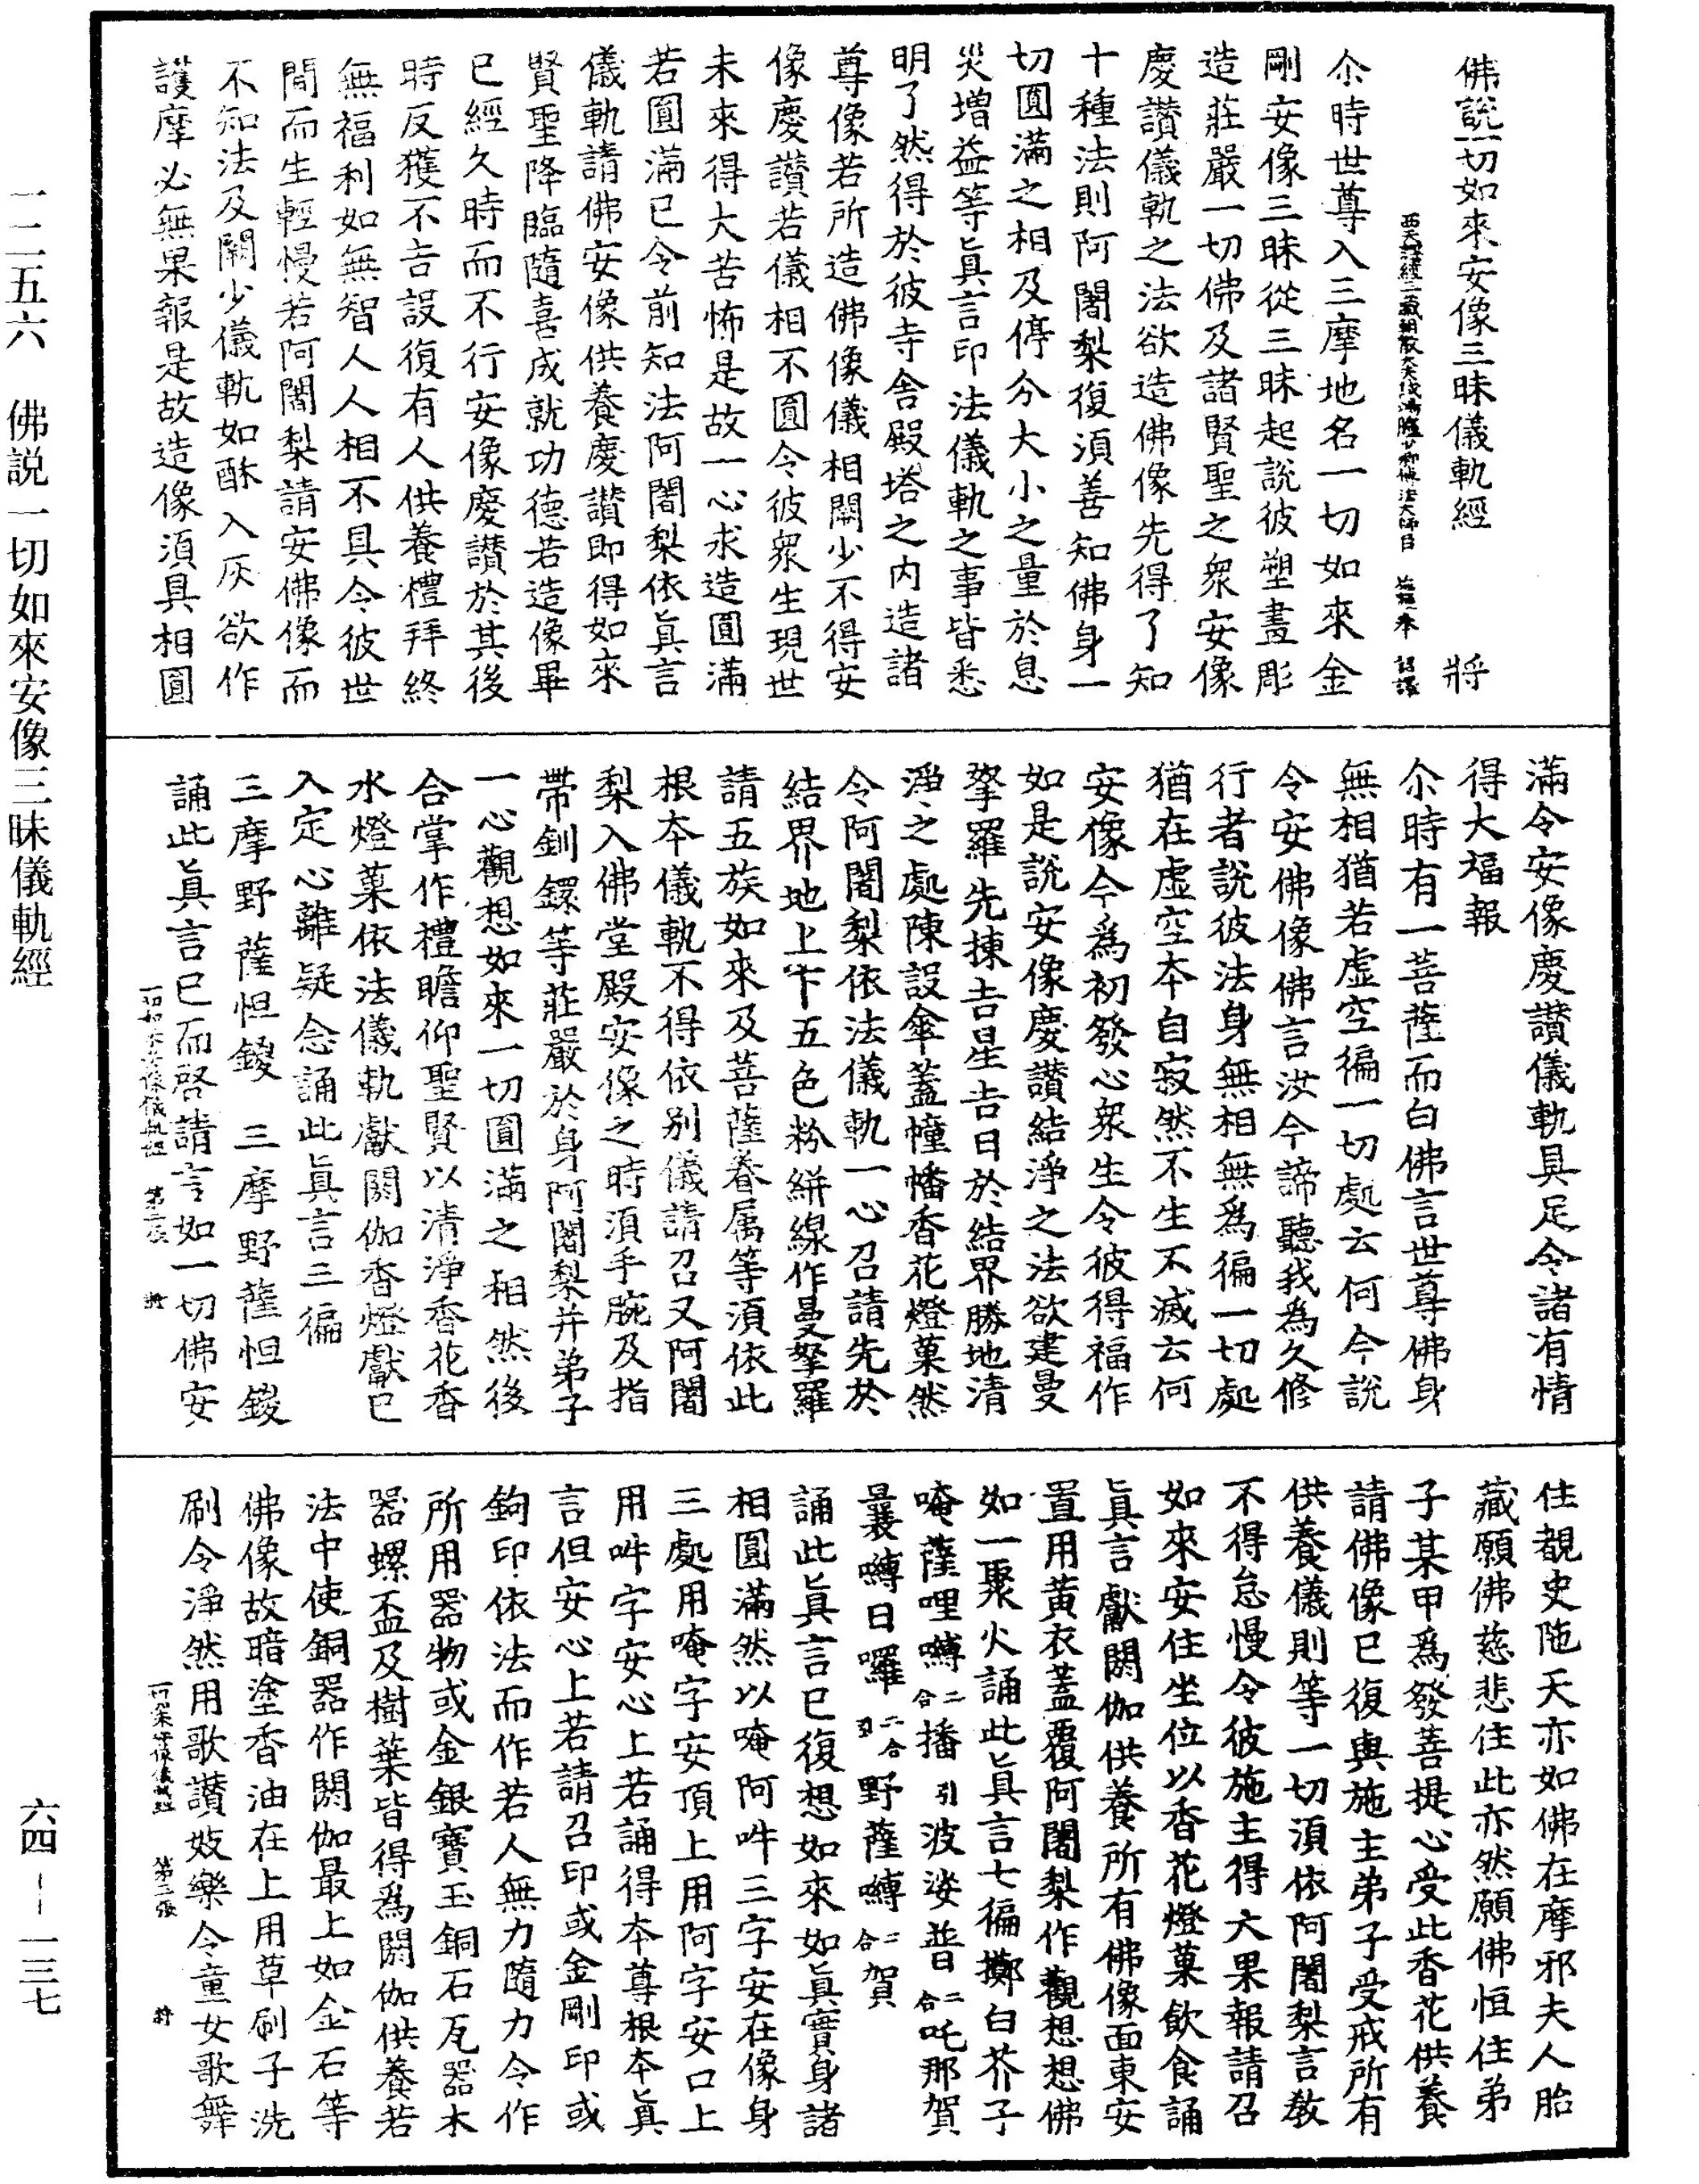 佛說一切如來安像三昧儀軌經　將
西天譯經三藏朝散大夫試鴻臚少卿傳法大師臣　施護奉　詔譯
尒時世尊入三摩地名一切如來金
剛安像三昧從三昧起說彼塑畫彫
造莊嚴一切佛及諸賢聖之衆安像
慶讚儀軌之法欲造佛像先得了知
十種法則阿闍梨復須善知佛身一
切圓滿之相及停分大小之量於息
災增益等眞言印法儀軌之事皆悉
明了然得於彼寺舍殿塔之內造諸
尊像若所造佛像儀相闕少不得安
像慶讚若儀相不圓令彼衆生現世
未來得大苦怖是故一心求造圓滿
若圓滿已令前知法阿闍梨依眞言
儀軌請佛安像供養慶讚即得如來
賢聖降臨隨喜成就功德若造像畢
已經久時而不行安像慶讚於其後
時反獲不吉設復有人供養禮拜終
無福利如無智人人相不具令彼世
間而生輕慢若阿闍梨請安佛像而
不知法及闕少儀軌如酥入灰欲作
護摩必無果報是故造像須具相圓
滿令安像慶讚儀軌具足令諸有情
得大福報
尒時有一菩薩而白佛言世尊佛身
無相猶若虛空徧一切處云何令說
令安佛像佛言汝今諦聽我為久修
行者說彼法身無相無爲徧一切處
猶在虛空本自寂然不生不滅云何
安像今爲初發心衆生令彼得福作
如是說安像慶讚結淨之法欲建曼
拏羅先揀吉星吉日於結界勝地清
淨之處陳設傘蓋幢幡香花燈菓然
令阿闍梨依法儀軌一心召請先於
結界地上下五色粉絣線作曼拏羅
請五族如來及菩薩眷属等須依此
根本儀軌不得依别儀請召又阿闍
梨入佛堂殿安像之時須手腕及指
帶釧鐶等莊嚴於身阿闍梨并弟子
一心觀想如來一切圓滿之相然後
合掌作禮瞻仰聖賢以清淨香花香
水燈菓依法儀軌獻閼伽香燈獻已
入定心離疑念誦此眞言三徧
三摩野薩怛鑁　三摩野薩怛鑁
誦此眞言已而啓請言如一切佛安
一切如來安像儀軌經　第二張　將
住覩史陁天亦如佛在摩邪夫人胎
藏願佛慈悲住此亦然願佛恒住弟
子某甲爲發菩提心受此香花供養
請佛像已復與施主弟子受戒所有
供養儀則等一切須依阿闍梨言敎
不得怠慢令彼施主得大果報請召
如來安住坐位以香花燈菓飲食誦
眞言獻閼伽供養所有佛像面東安
置用黃衣蓋覆阿闍梨作觀想想佛
如一聚火誦此眞言七徧擲白芥子
唵薩哩嚩二合播引波娑普二合吒那賀
曩嚩日囉二合引野薩嚩二合賀
誦此眞言已復想如來如眞實身諸
相圓滿然以唵阿吽三字安在像身
三處用唵字安頂上用阿字安口上
用吽字安心上若誦得本尊根本眞
言但安心上若請召印或金剛印或
鉤印依法而作若人無力隨力令作
所用器物或金銀寶玉銅石瓦器木
器螺盃及樹葉皆得爲閼伽供養若
法中使銅器作閼伽最上如金石等
佛像故暗塗香油在上用草刷子洗
刷令淨然用歌讚妓樂令童女歌舞
一切如來安像儀軌經　第三張　將
一二五六　佛説一切如來安像三昧儀軌經
六四——一三七